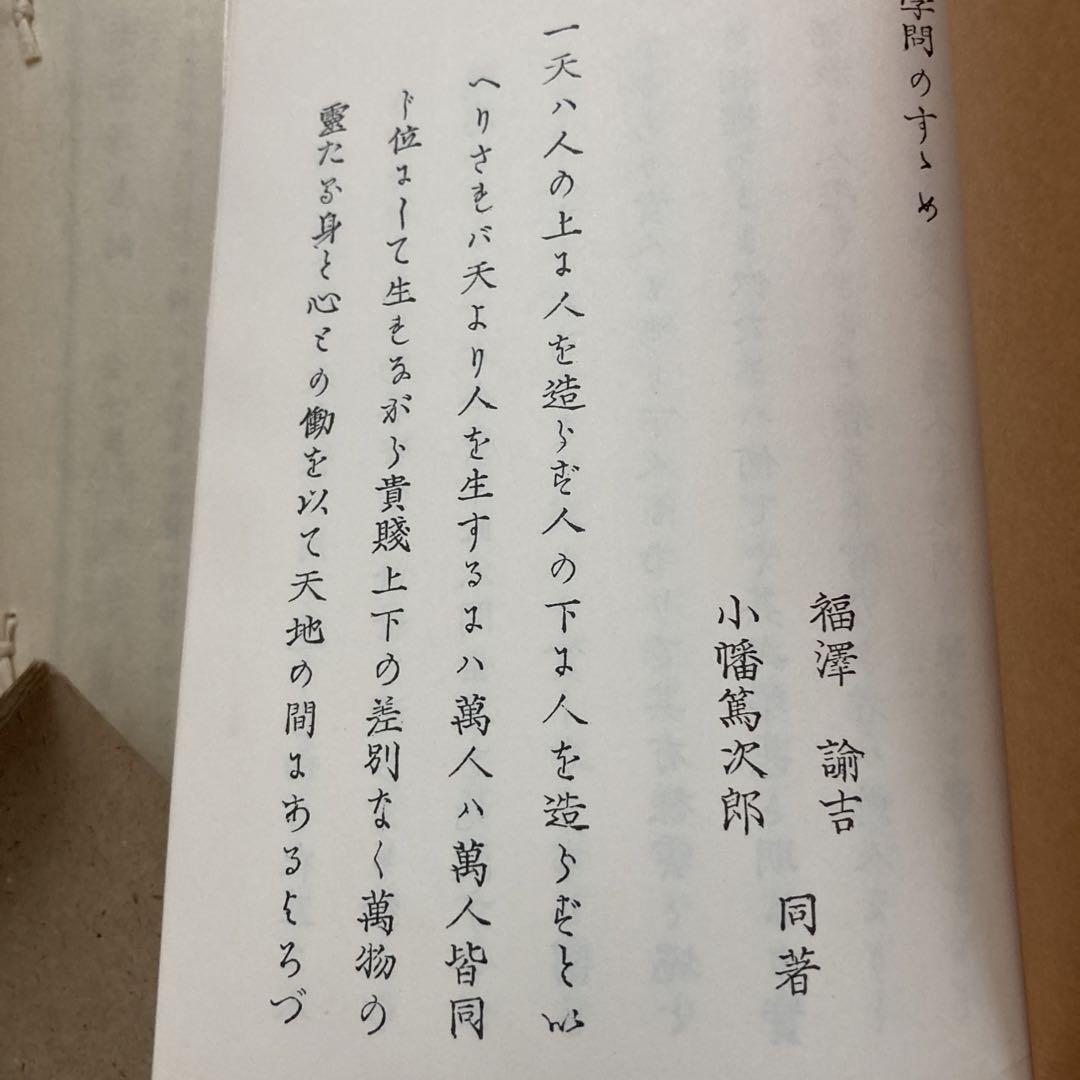 学問のすゝめ
福澤 諭吉
小幡篤次郎
同著
一天ハ人の上に人を造らず人の下に人を造らずと以
へりされバ天より人を生するにハ萬人ハ萬人皆同
じ位にして生れながら貴賤上下の差別なく萬物の
靈たる身と心との働を以て天地の間にあるよろづ